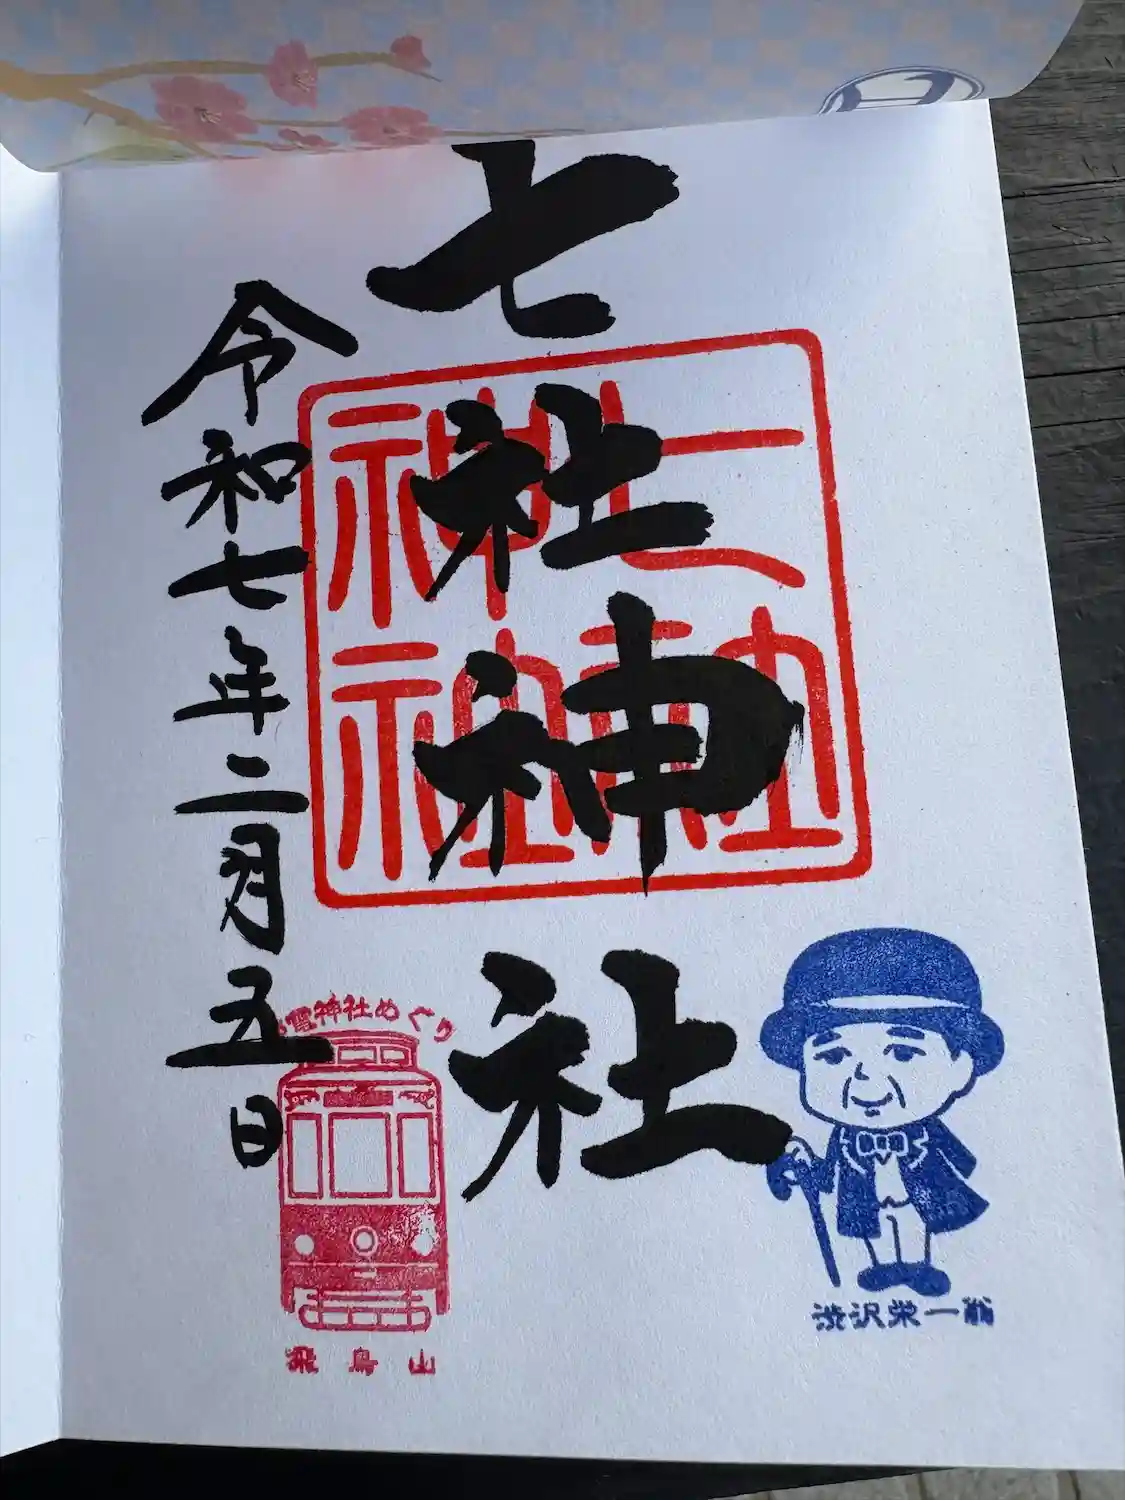 七社神社
令和七年二月五日
七社神社神社
電神社めぐり
飛鳥山
渋沢栄一翁